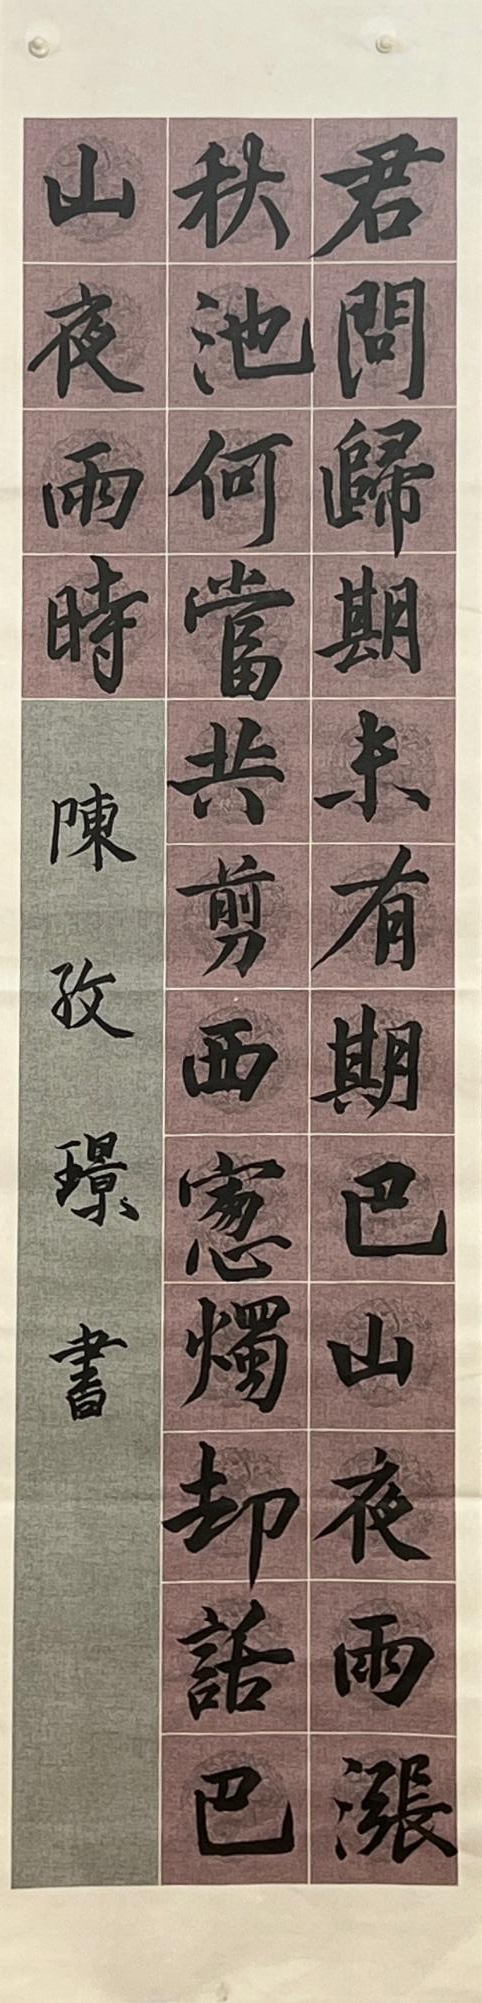 君問歸期未有期巴山夜雨漲
秋池何當共剪西窻燭却話巴
山夜雨時
陳孜璟書